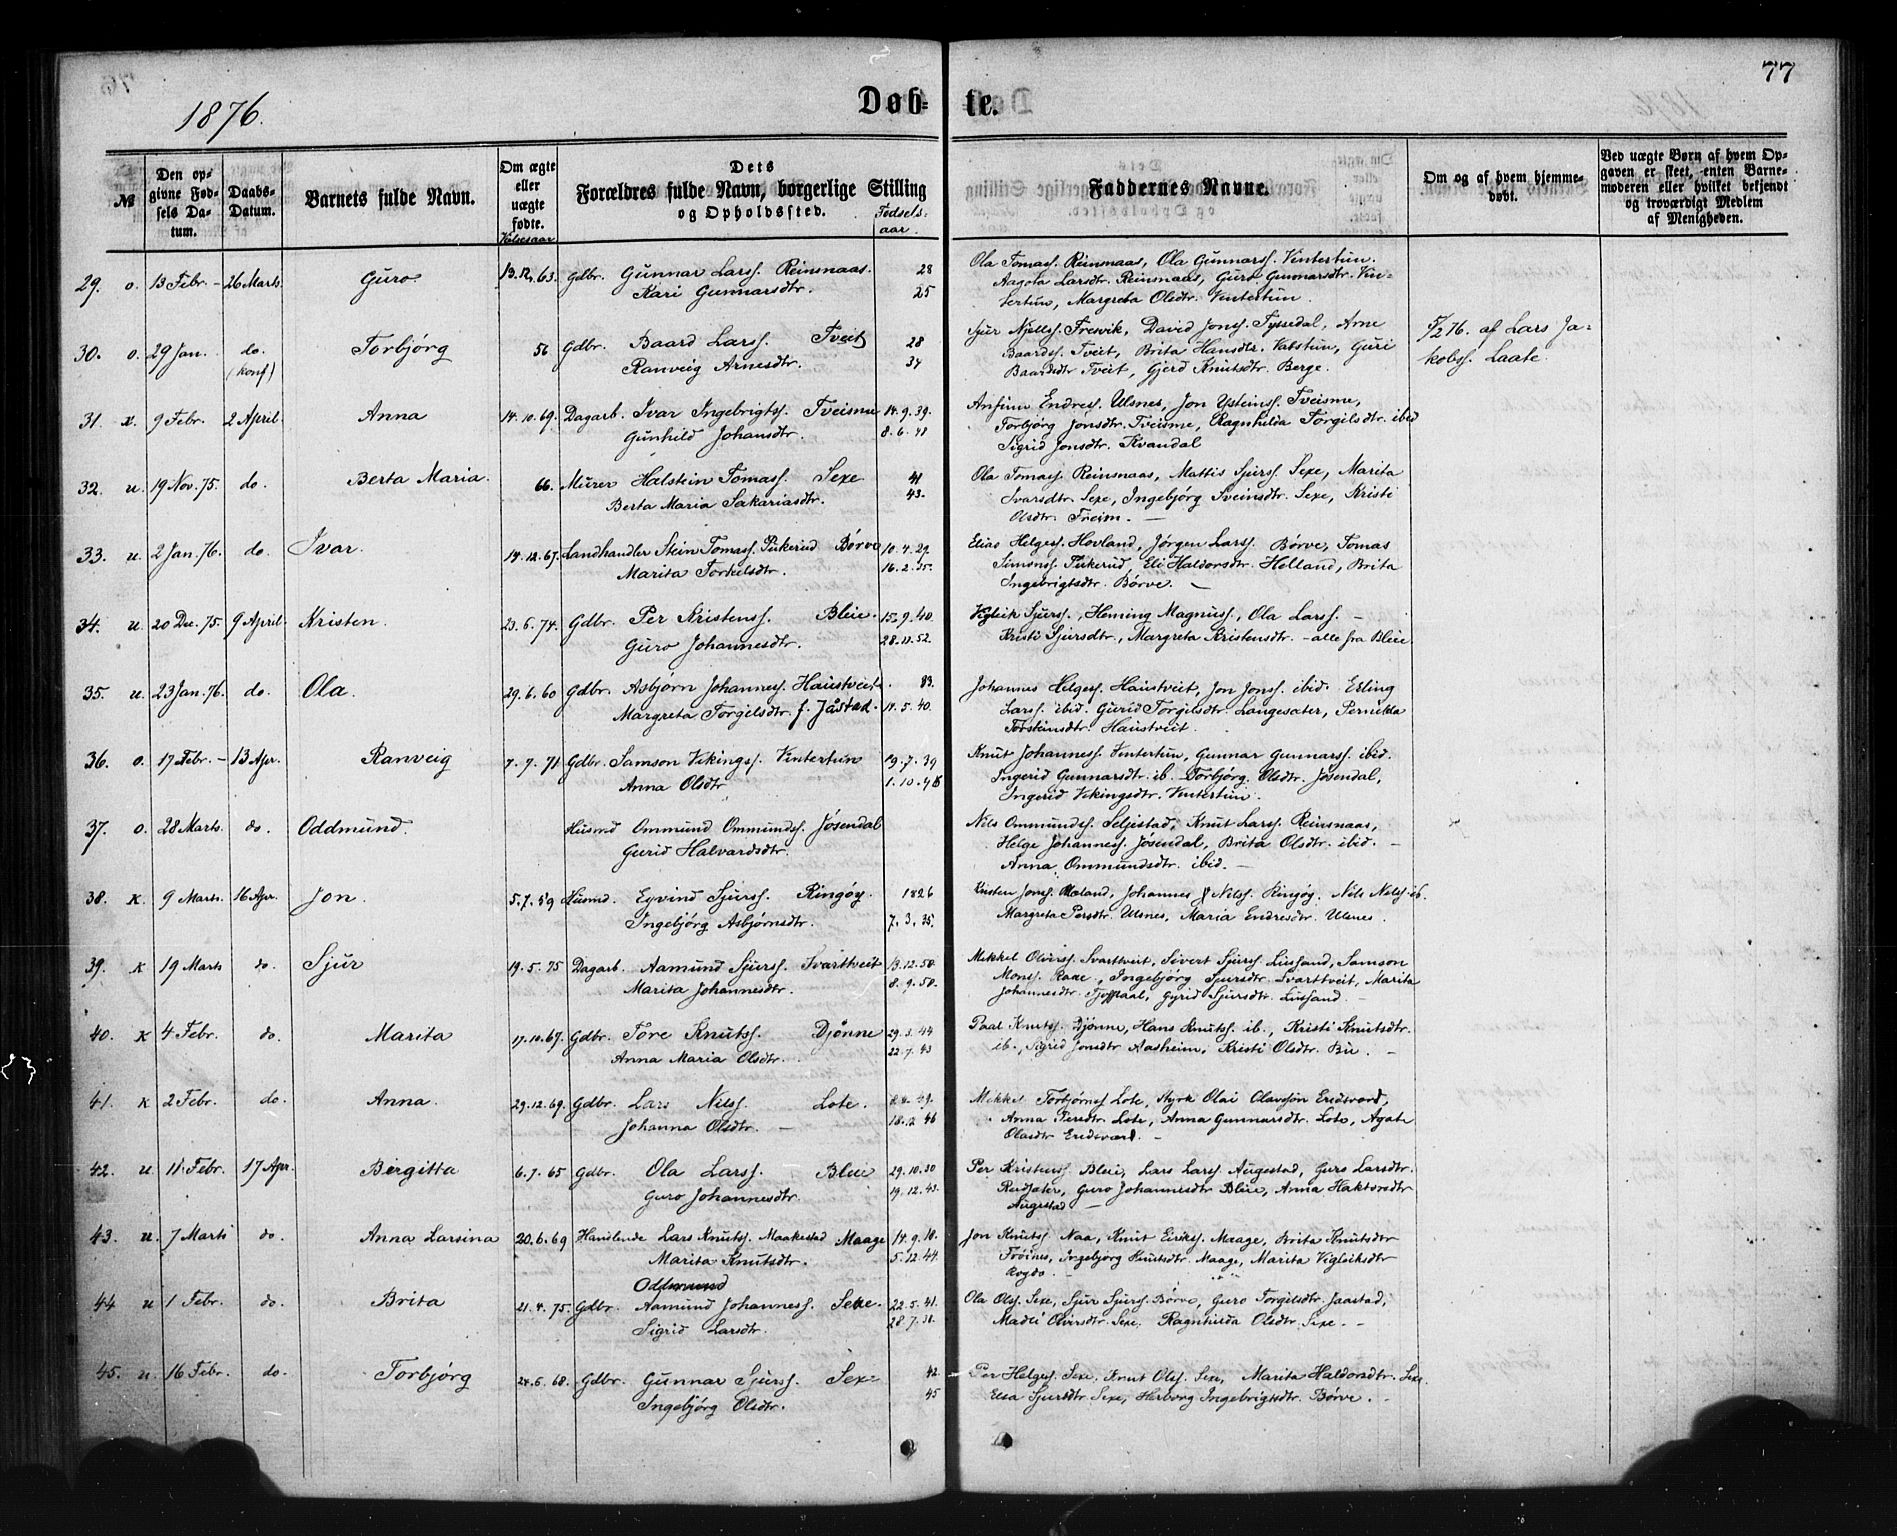 77
1876.
Døb- te.
№
Den opgivne Fødsels Datum.
Daabs-Datum.
Barnets fulde Navn.
Om ægte eller uægte fødte.
Vielsesaar
Dets Forældres fulde Navn, borgerlige Stilling og Opholdssted.
Fødselsaar.
Faddernes Navne.
Om og af hvem hjemmedøbt.
Ved uægte Børn af hvem Opgaven er skeet, enten Barnemoderen eller hvilket bekjendt og troværdigt Medlem af Menigheden.
29. o. 13 Febr. - 26 Marts. Guro 13.12.63. Gdbr. Gunnar Larss. Reinsnaas. 28
Kari Gunnarsdtr. 25
Ola Tomass. Reinsnaas, Ola Gunnarss. Vintertun.
Aagota Larsdtr. Reinsnaas, Guro Gunnarsdtr. Vin-
tertun, Margreta Olsdtr. Vintertun.
30. o. 29 Jan. do. (konf) Torbjørg 56 Gdbr. Baard Larss. Tveit 28
Ranveig Arnesdtr. 34
Sjur Njells. Fresvik, David Jonss. Tyssedal, Arne
Baardss. Tveit, Brita Hansdtr. Vatstun, Guri
Baardsdtr Tveit, Gjerd Knutsdtr. Berge.
5/2 76. af Lars Ja-
kobss. Laate.
31. x. 9 Febr. 2 April. Anna 14.10.69. Dagarb. Ivar Ingebrigts. Tveisme 14.9.39.
Gunhild Johansdtr. 8.6.48
Anfinn Endress. Ulsnes, Jon Ysteinss. Tveisme,
Torbjørg Jonsdtr. Tveisme, Ragnhilda Torgilsdtr. ibid
Sigrid Jonsdtr. Kvandal
32. u. 19 Nov. 75. do. Berta Maria. 66. Murer Halstein Tomass. Sexe 41
Berta Maria Sakariasdtr. 43.
Ola Tomass. Reinsnaas, Mattis Sjurss. Sexe, Marita
Ivarsdtr. Sexe, Ingebjørg Sveinsdtr. Sexe, Kristi
Olsdtr. Freim. —
33. u. 2 Jan. 76. do. Ivar. 14.12.67. Landhandler Stein Tomass. Pikerud Børve 10.4.29.
Marita Torkelsdtr. 16.2.35.
Elias Helgess. Hovland, Jørgen Larss. Børve, Tomas
Simonss. Pikerud, Eli Haldorsdtr. Helland, Brita
Ingebrigtsdtr. Børve. —
34. u. 20 Dec. 75. 9 April. Kristen. 23.6.74. Gdbr. Per Kristenss. Bleie. 15.9.40.
Guro Johannesdtr. 28.11.52.
Vigleik Sjurss., Heming Magnuss., Ola Larss. —
Kristi Sjursdtr., Margreta Kristensdtr. - alle fra Bleie
35. u. 23 Jan. 76. do. Ola. 29.6.60 Gdbr. Asbjørn Johanness. Haustveit. 83.
Margreta Torgilsdtr f. Jåstad. 14.5.40.
Johannes Helgess. Haustveit, Jon Jonss. ibid. Erling
Larss. ibid. Gurid Torgilsdtr. Langesæter, Pernilda
Torsteinsdtr. Haustveit.
36. o. 17 Febr. - 13 Apr. Ranveig 7.7.71 Gdbr. Samson Vikingss. Vintertun 19.7.39
Anna Olsdtr 1.10.46
Knut Johanness. Vintertun, Gunnar Gunnarss. ibid.
Ingerid Gunnarsdtr. ib. Torbjørg. Olsdtr. Jøsendal,
Ingerid Vikingsdtr. Vintertun.
37. o. 28 Marts. do. Oddmund. Husmd Ommund Ommundss. Jøsendal
Gurid Halvardsdtr.
Nils Ommundss. Seljestad, Knut Larss. Reinsnaas,
Helge Johanness. Jøsendal, Brita Olsdtr. ibid. —
Anna Ommundsdtr. ibid. —
38. K. 9 Marts. 16 Apr. Jon. 5.7.59 Husmd. Eyvind Sjurss. Ringøy. 1826
Ingebjørg Asbjørnsdtr. 7.3.35.
Kristen Jonss. Mæland, Johannes Nilss. Ringøy. Nils Nilss. ib.
Margreta Persdtr. Ulsnes, Maria Endresdtr. Ulsnes.
39. K 19 Marts do. Sjur 19.5.75 Dagarb. Aamund Sjurss. Svarttveit 13.12.50.
Marita Johannesdtr. 8.9.50.
Mikkel Olverss. Svarttveit, Sivert Sjurss. Lussand, Samson
Monss. Raae, Ingebjørg Sjursdtr. Svarttveit, Marita
Johannesdtr. , Gyrid Sjursdtr. Lussand. —
40. K 4 Febr. do. Marita 17.10.67. Gdbr. Tore Knutss. Djønne 29.3.44
Anna Maria Olsdtr. 22.7.43
Paal Knutss. Djønne, Hans Knutss. ib., Kristi Knutsdtr.
ib., Sigrid Jonsdtr Aasheim, Kristi Olsdtr. Bu. —
41. K 2 Febr. do. Anna. 29.12.69. Gdbr. Lars Nilss. Lote. 49.
Johanna Olsdtr. — 18.2.46
Mikkel Torbjørnss Lote, Styrk Olai Olavsson Eridsværd,
Anna Persdtr. Lote, Anna Gunnarsdtr. Lote, Agate
Olasdtr Eridsværd. —
42. u 11. Febr. 17 Apr. Birgitta 6.7.65 Gdbr. Ola Larss. Bleie 29.10.30
Guro Johannesdtr. 19.12.43.
Per Kristenss. Bleie, Lars Larss. Augestad, Guro Larsdtr.
Reisæter, Guro Johannesdtr Bleie, Anna Haktorsdtr
Augestad —
43. u. 7 Marts do. Anna Larsina 20.6.69 Handlende Lars Knutss. Maakestad Maage 14.9.18.
Marita Knutsdtr. 5.12.44.
Jon Knutss. Naa, Knut Eirikss. Maage, Brita Knutsdtr
Frøines, Ingebjørg Knutsdtr. Maage, Marita Vigleiksdtr
Rogde. —
Oddmund
44 u 1 Febr. do. Brita 21.4.75. Gdbr. Aamund Johanness. Sexe. 22.5.41.
Sigrid Larsdtr. 28.7.38.
Ola Olss. Sexe, Sjur Sjurss. Børve, Guro Torgilsdtr. Jaastad,
Madli Olversdtr. Sexe, Ragnhilda Olsdtr. Sexe. —
45. u. 16 Febr. do. Torbjørg 24.6.68. Gdbr. Gunnar Sjurss. Sexe 42.
Ingebjørg Olsdtr. 45
Per Helgess. Sexe, Knut Olss. Sexe, Marita Haldorsdtr. Sexe
Elsa Sjursdtr. Sexe, Herborg Ingebrigtsdtr. Børve. —